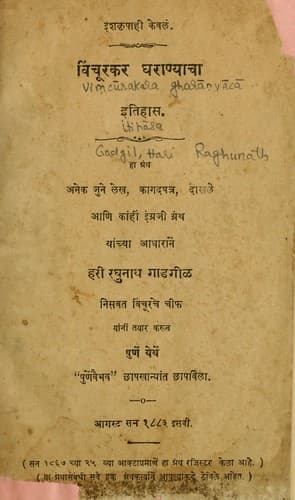 इशकृपाही केवलं.
विंचूरकर घराण्याचा
Vimcūrakala ghalānyācā
इतिहास.
itihāsa
Gadgil, Hari Raghunāth
हा ग्रंथ
अनेक जुने लेख, कागदपत्र, दाखले
आणि कांहीं इंग्रजी ग्रंथ
यांच्या आधारानें
हरी रघुनाथ गाडगीळ
निसबत विंचूरचे चीफ
यांनीं तयार करून
पुणें येथें
"पुणेंवैभव" छापखान्यांत छापविला.
आगस्ट सन १८८३ इसवी.
( सन १८६७ च्या २५ व्या आक्टाप्रमाणें हा ग्रंथ रजिस्टर केला आहे. )
( या ग्रंथासंबंधी सर्व हक्क ग्रंथकर्त्यानें आपल्याकडे ठेविले आहेत. )